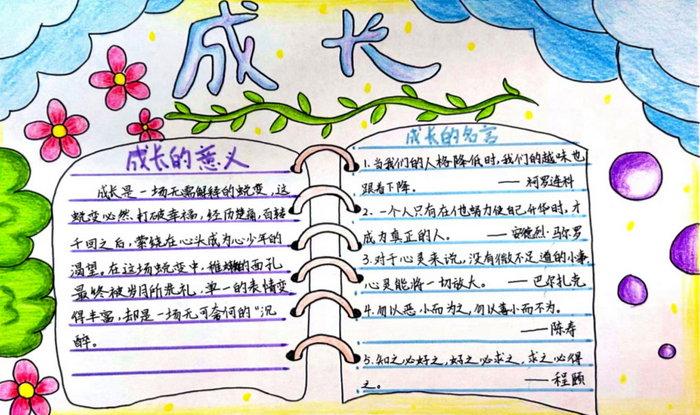 成长
成长的意义
成长是一场无需解释的蜕变，这
蜕变必然打破幸福，经历楚痛，百转
千回之后，萦绕在心头成为心少年的
渴望，在这场蜕变中，稚嫩的面孔
最终被岁月所洗礼，单一的表情变
得丰富，却是一场无可奈何的“沉
醉。
成长的名言
1.当我们的人格降低时，我们的趣味也
跟着下降。 ——柯罗连科
2.一个人只有在他努力使自己升华时，才
成为真正的人。 ——安德烈·马尔罗
3.对于心灵来说，没有微不足道的小事，
心灵能将一切放大。 ——巴尔扎克
4.勿以恶小而为之，勿以善小而不为。
——陈寿
5.知之必好之，好之必求之，求之必得
之。 ——程颐